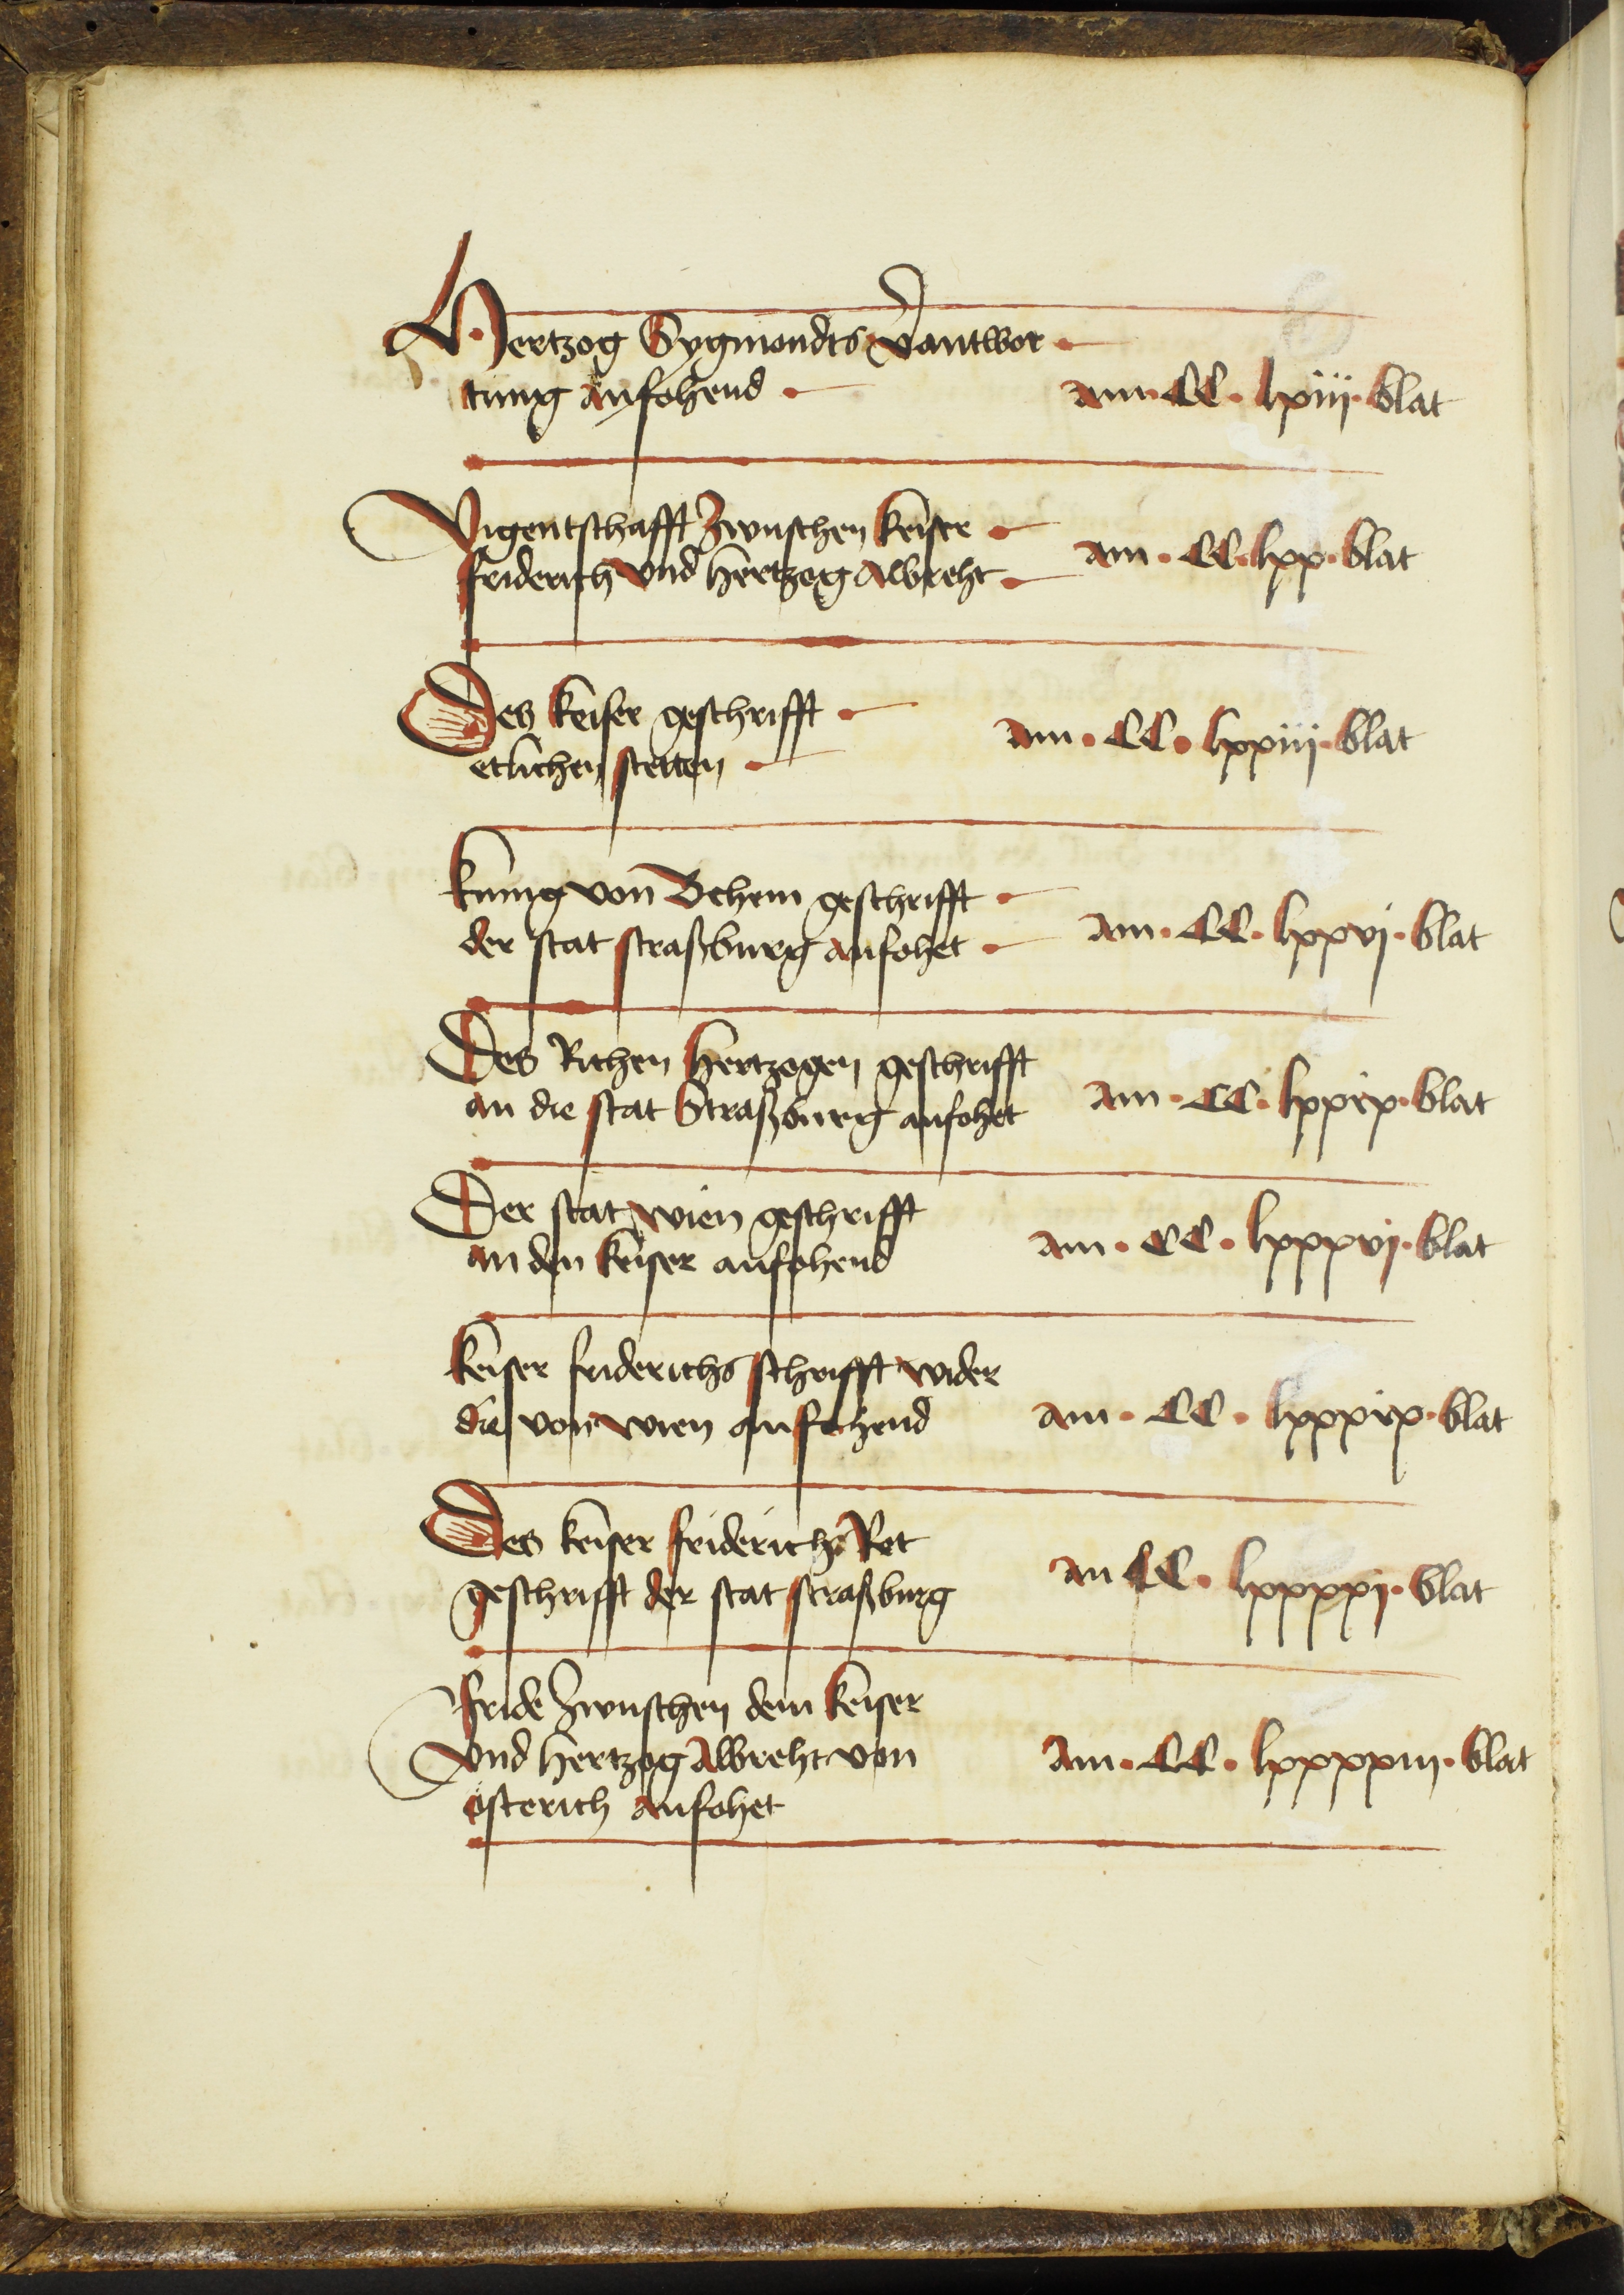 Hertzog Sygmondts v̾antwor
tung anfohend am · CC · lxiij · blat
Vigentschafft zwuschen keiser
friderich vnd hertzog Albreht am · CC · lxx · blat
Des keiser geschrifft
etlichen stetten am · CC · lxxiij · blat
kunig von Behem geschrifft
der stat straßburg anfohet am · CC · lxxvj · blat
Des Richen hertzogen geschrifft
an die stat Straßburg anfohet am · CC · lxxix · blat
Der stat wien geschrifft
an den keiser anfohend am · CC · lxxxvj · blat
keiser friderichs schrifft wider
die von wien anfohend am · CC · lxxxix · blat
Des keiser friderichs Ret
geschrifft der stat straßburg an CC · lxxxxj · blat
fride zwuschen dem keiser
vnd hertzog Albreht von am · CC · lxxxxiij · blat
österich anfohet